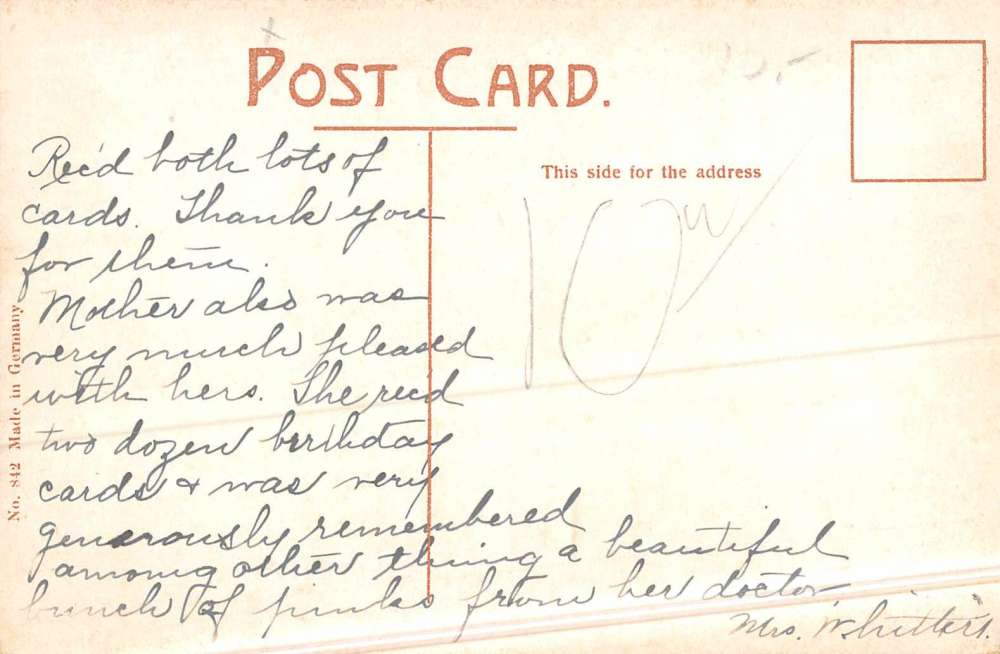 POST CARD.
This side for the address
Rec'd both lots of
cards. Thank you
for them.
Mother also was
very much pleased
with hers. She rec'd
two dozen birthday
cards & was very
generously remembered
among other thing a beautiful
bunch of pinks from her doctor
Mrs.
10
No. 842 Made in Germany